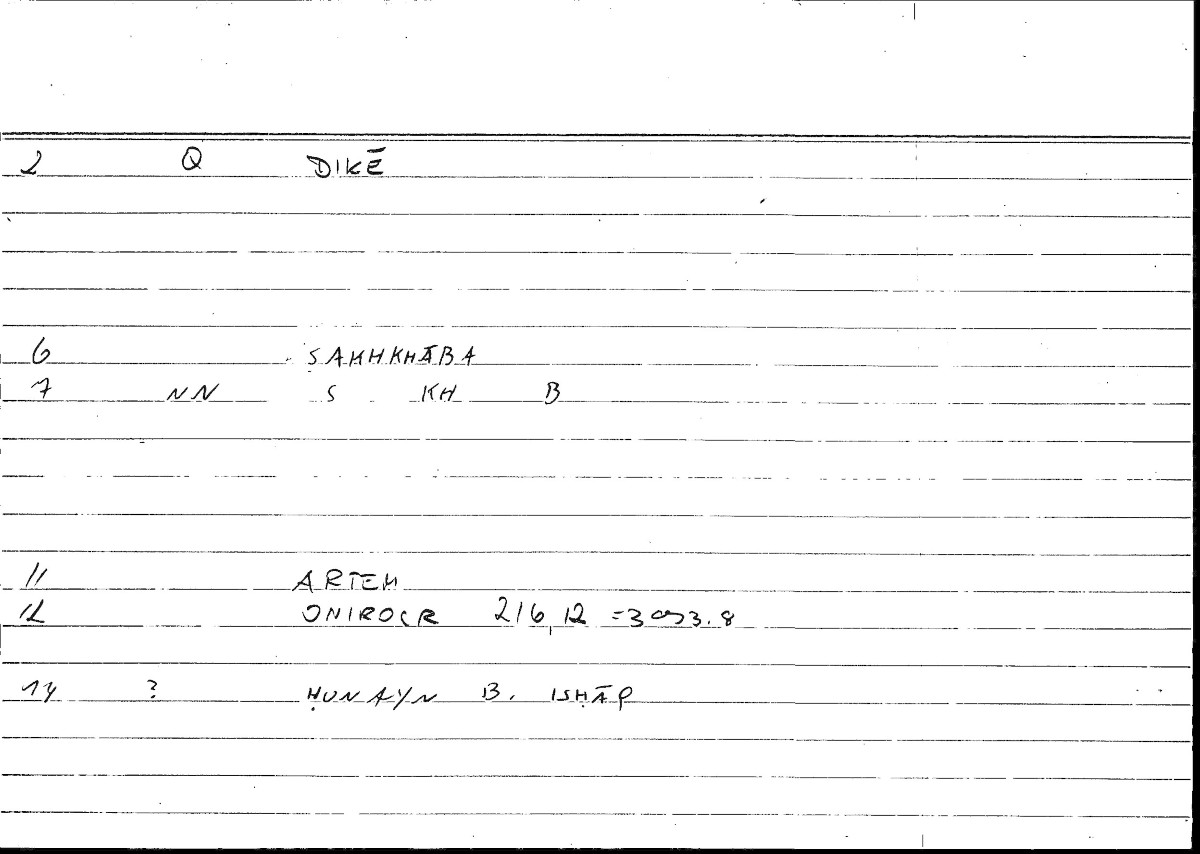 2 Q DIKĒ
6 SAKHKHĀBA
7 NN S KH B
11 ARTEM
12 ONIROCR 216,12 =393.8
14 ? ḤUNAYN B. ISḤĀQ